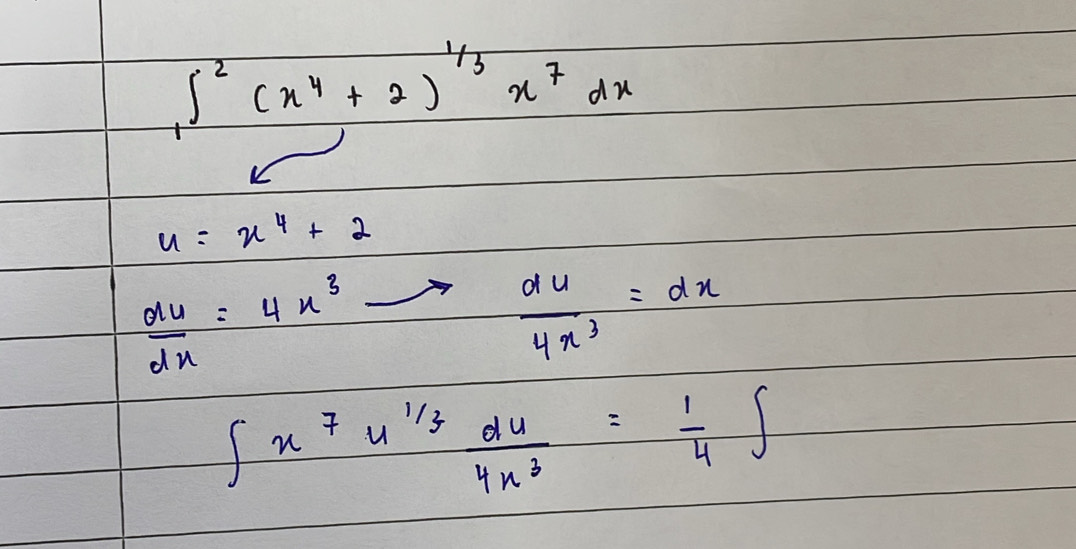 ∫₁² (x⁴ + 2)^1/3 x⁷ dx
u = x⁴ + 2
du/dx = 4x³ → du/4x³ = dx
∫ x⁷ u^1/3 du/4x³ = 1/4 ∫